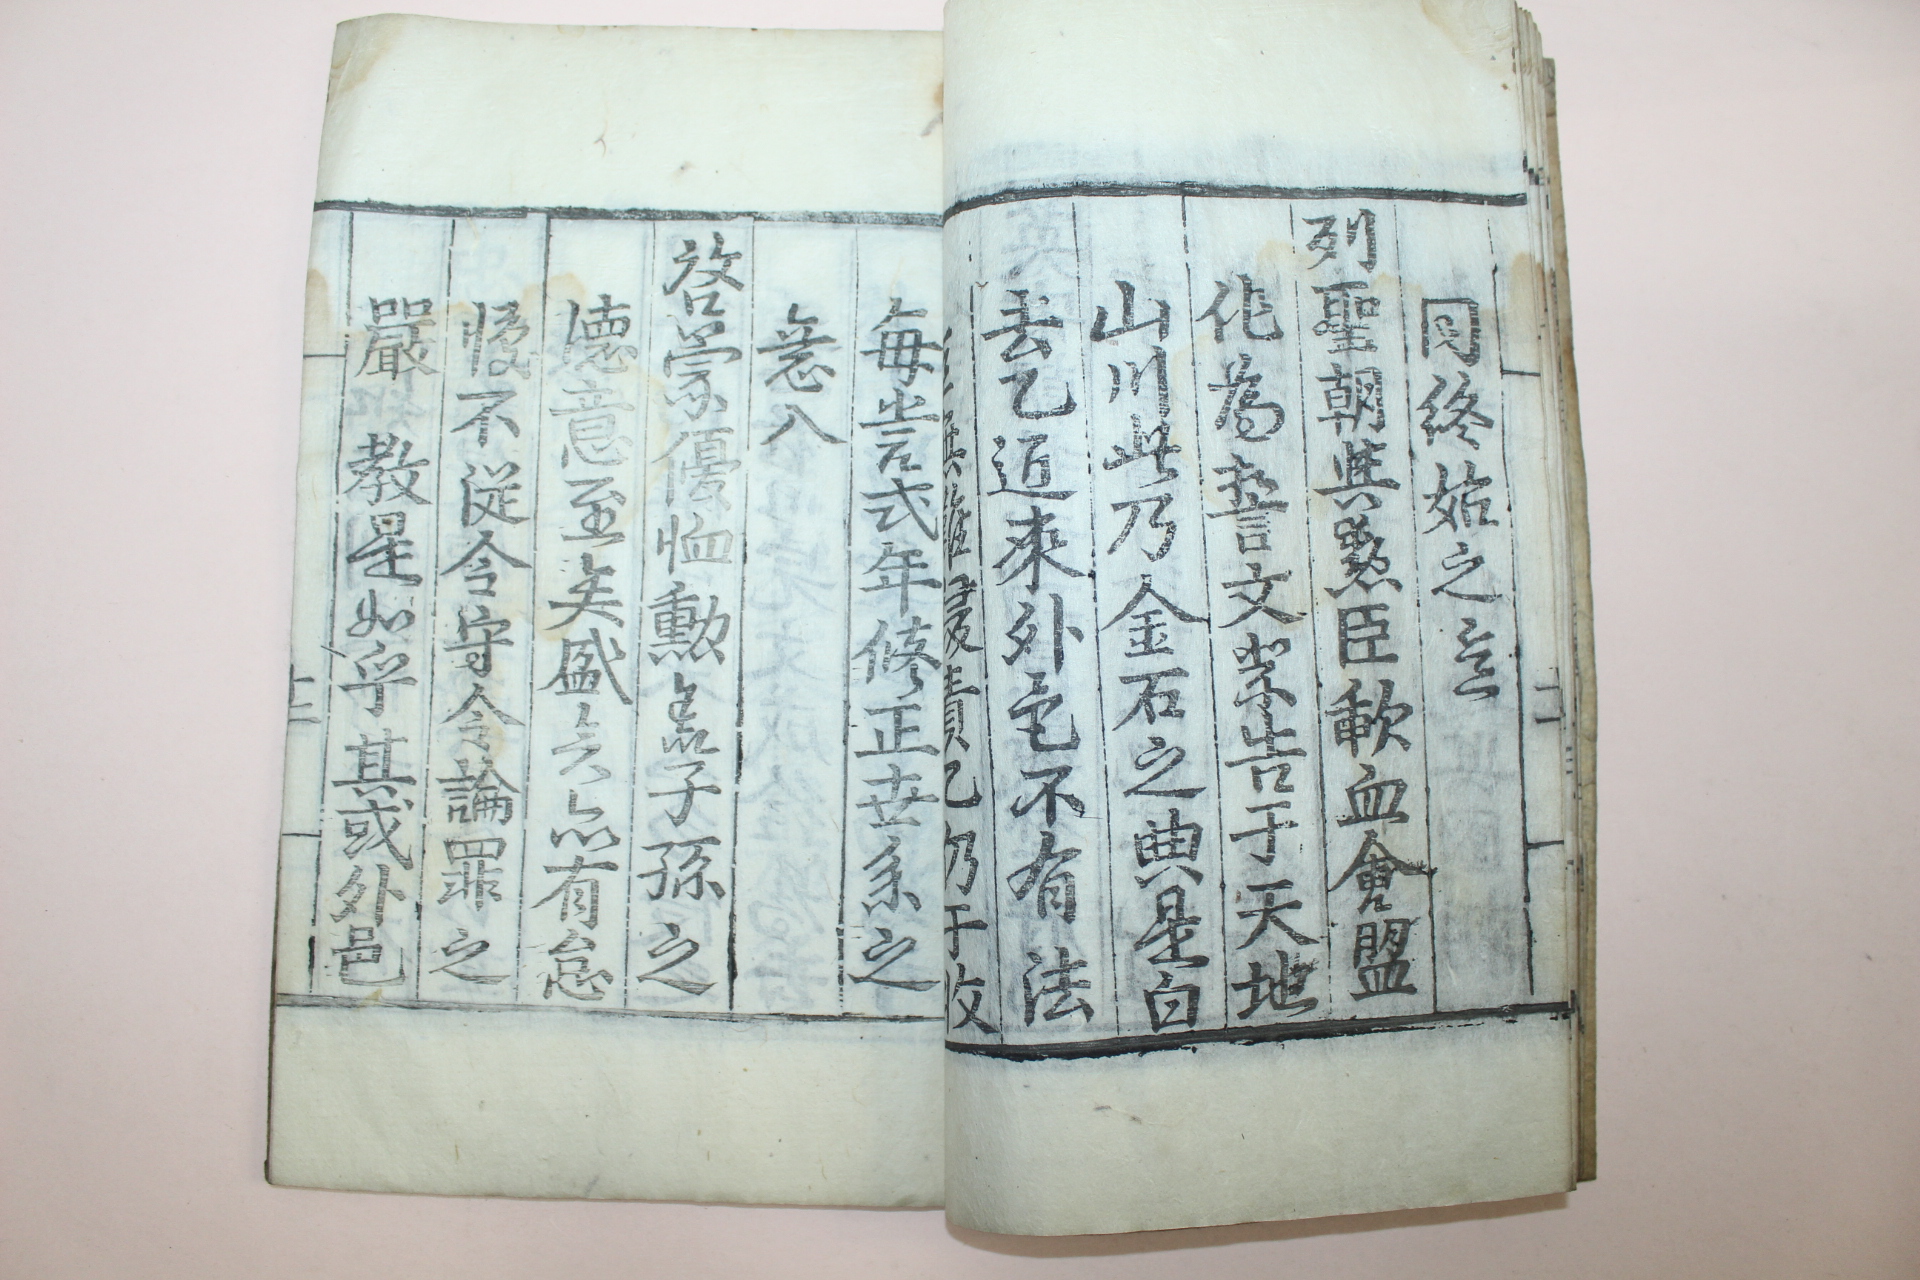 同終始之意
列聖朝與勲臣歃血會盟
作為誓文崇告于天地
山川此乃金石之典是白
去乙近来外邑不有法
責乙仍于收
每當式年修正世系之
意八
啓蒙優恤勳兪子孫之
德意至矣盛矣亦有怠
慢不從令守令論罪之
嚴教是如乎其或外邑
十二